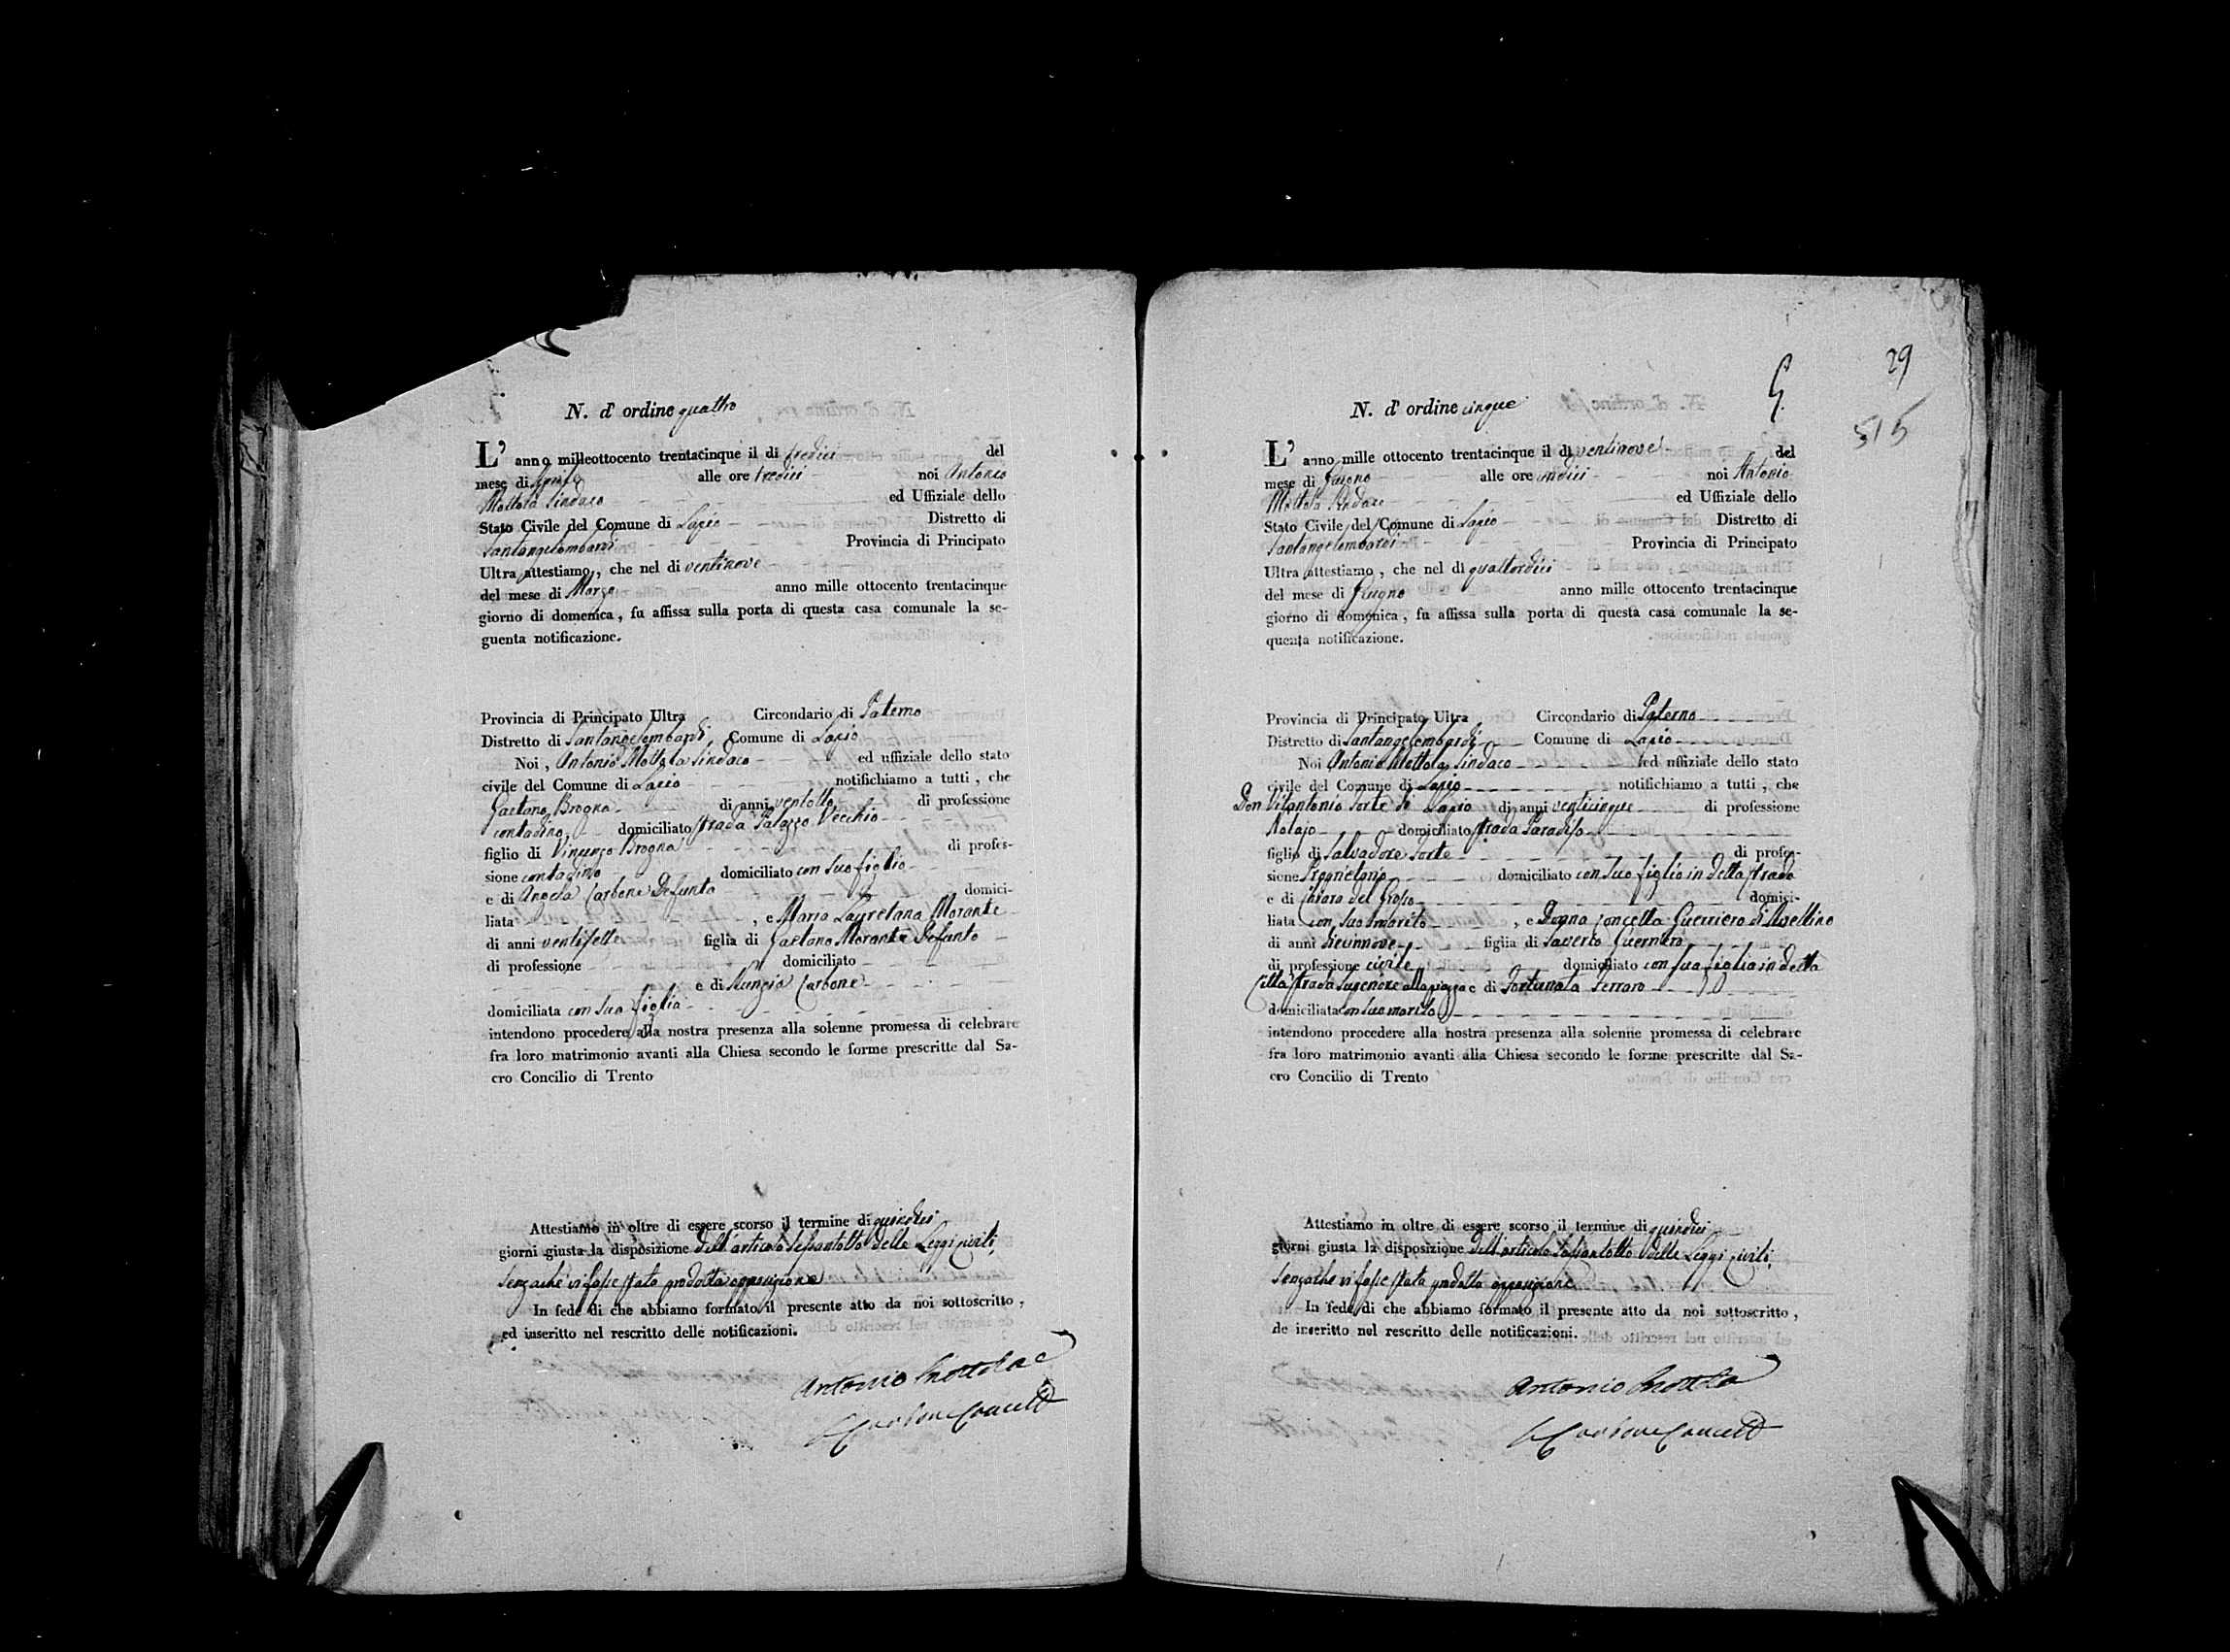 N. d' ordine quattro
L' anno milleottocento trentacinque il di tredici del
mese di Aprile alle ore tredici noi Antonio
Mottola Sindaco ed Uffiziale dello
Stato Civile del Comune di Lapio Distretto di
Santangelombardi Provincia di Principato
Ultra attestiamo, che nel di ventinove
del mese di Marzo anno mille ottocento trentacinque
giorno di domenica, fu affissa sulla porta di questa casa comunale la se-
guenta notificazione.
Provincia di Principato Ultra Circondario di Paterno
Distretto di Santangelombardi Comune di Lapio
Noi, Antonio Mottola Sindaco ed uffiziale dello stato
civile del Comune di Lapio notifichiamo a tutti, che
Gaetano Brogna di anni ventotto di professione
contadino domiciliato strada Palazzo Vecchio
figlio di Vincenzo Brogna di profes-
sione contadino domiciliato con suo figlio
e di Angela Carbone Defunta domici-
liata , e Maria Lauretana Morante
di anni ventisette figlia di Gaetano Morante Defunto
di professione domiciliato
e di Nunzia Carbone
domiciliata con sua figlia
intendono procedere alla nostra presenza alla solenne promessa di celebrare
fra loro matrimonio avanti alla Chiesa secondo le forme prescritte dal Sa-
cro Concilio di Trento
Attestiamo in oltre di essere scorso il termine di quindici
giorni giusta la disposizione dell'articolo sessantotto delle Leggi civili,
senzache vi fosse stata prodotta opposizione
In fede di che abbiamo formato il presente atto da noi sottoscritto,
ed inseritto nel rescritto delle notificazioni.
Antonio Mottola
Carbone
29
5
515
N. d' ordine cinque
L' anno mille ottocento trentacinque il di ventinove del
mese di Giugno alle ore undici noi Antonio
Mottola Sindaco ed Uffiziale dello
Stato Civile del Comune di Lapio Distretto di
Santangelombardi Provincia di Principato
Ultra attestiamo, che nel di quattordici
del mese di Giugno anno mille ottocento trentacinque
giorno di domenica, fu affissa sulla porta di questa casa comunale la se-
quenta notificazione.
Provincia di Principato Ultra Circondario di Paterno
Distretto di Santangelombardi Comune di Lapio
Noi Antonio Mottola Sindaco ed uffiziale dello stato
civile del Comune di Lapio notifichiamo a tutti, che
Don Vitantonio Forte di Lapio di anni venticinque di professione
Notajo domiciliato strada Paradiso
figlio di Salvadore Forte di profes-
sione Proprietario domiciliato con suo figlio in detta strada
e di Chiara del Grosso domici-
liata con suo marito , e Donna Concetta Guerriero di Avellino
di anni diecinnove figlia di Saverio Guerriero
di professione civile domiciliato con sua figlia in detta
Città strada Superiore alla piazza e di Fortunata Ferraro
domiciliata con suo marito
intendono procedere alla nostra presenza alla solenne promessa di celebrare
fra loro matrimonio avanti alla Chiesa secondo le forme prescritte dal Sa-
cro Concilio di Trento
Attestiamo in oltre di essere scorso il termine di quindici
giorni giusta la disposizione dell'articolo sessantotto delle Leggi Civili,
senzache vi fosse stata prodotta opposizione
In fede di che abbiamo formato il presente atto da noi sottoscritto,
de inseritto nel rescritto delle notificazioni.
Antonio Mottola
Carbone